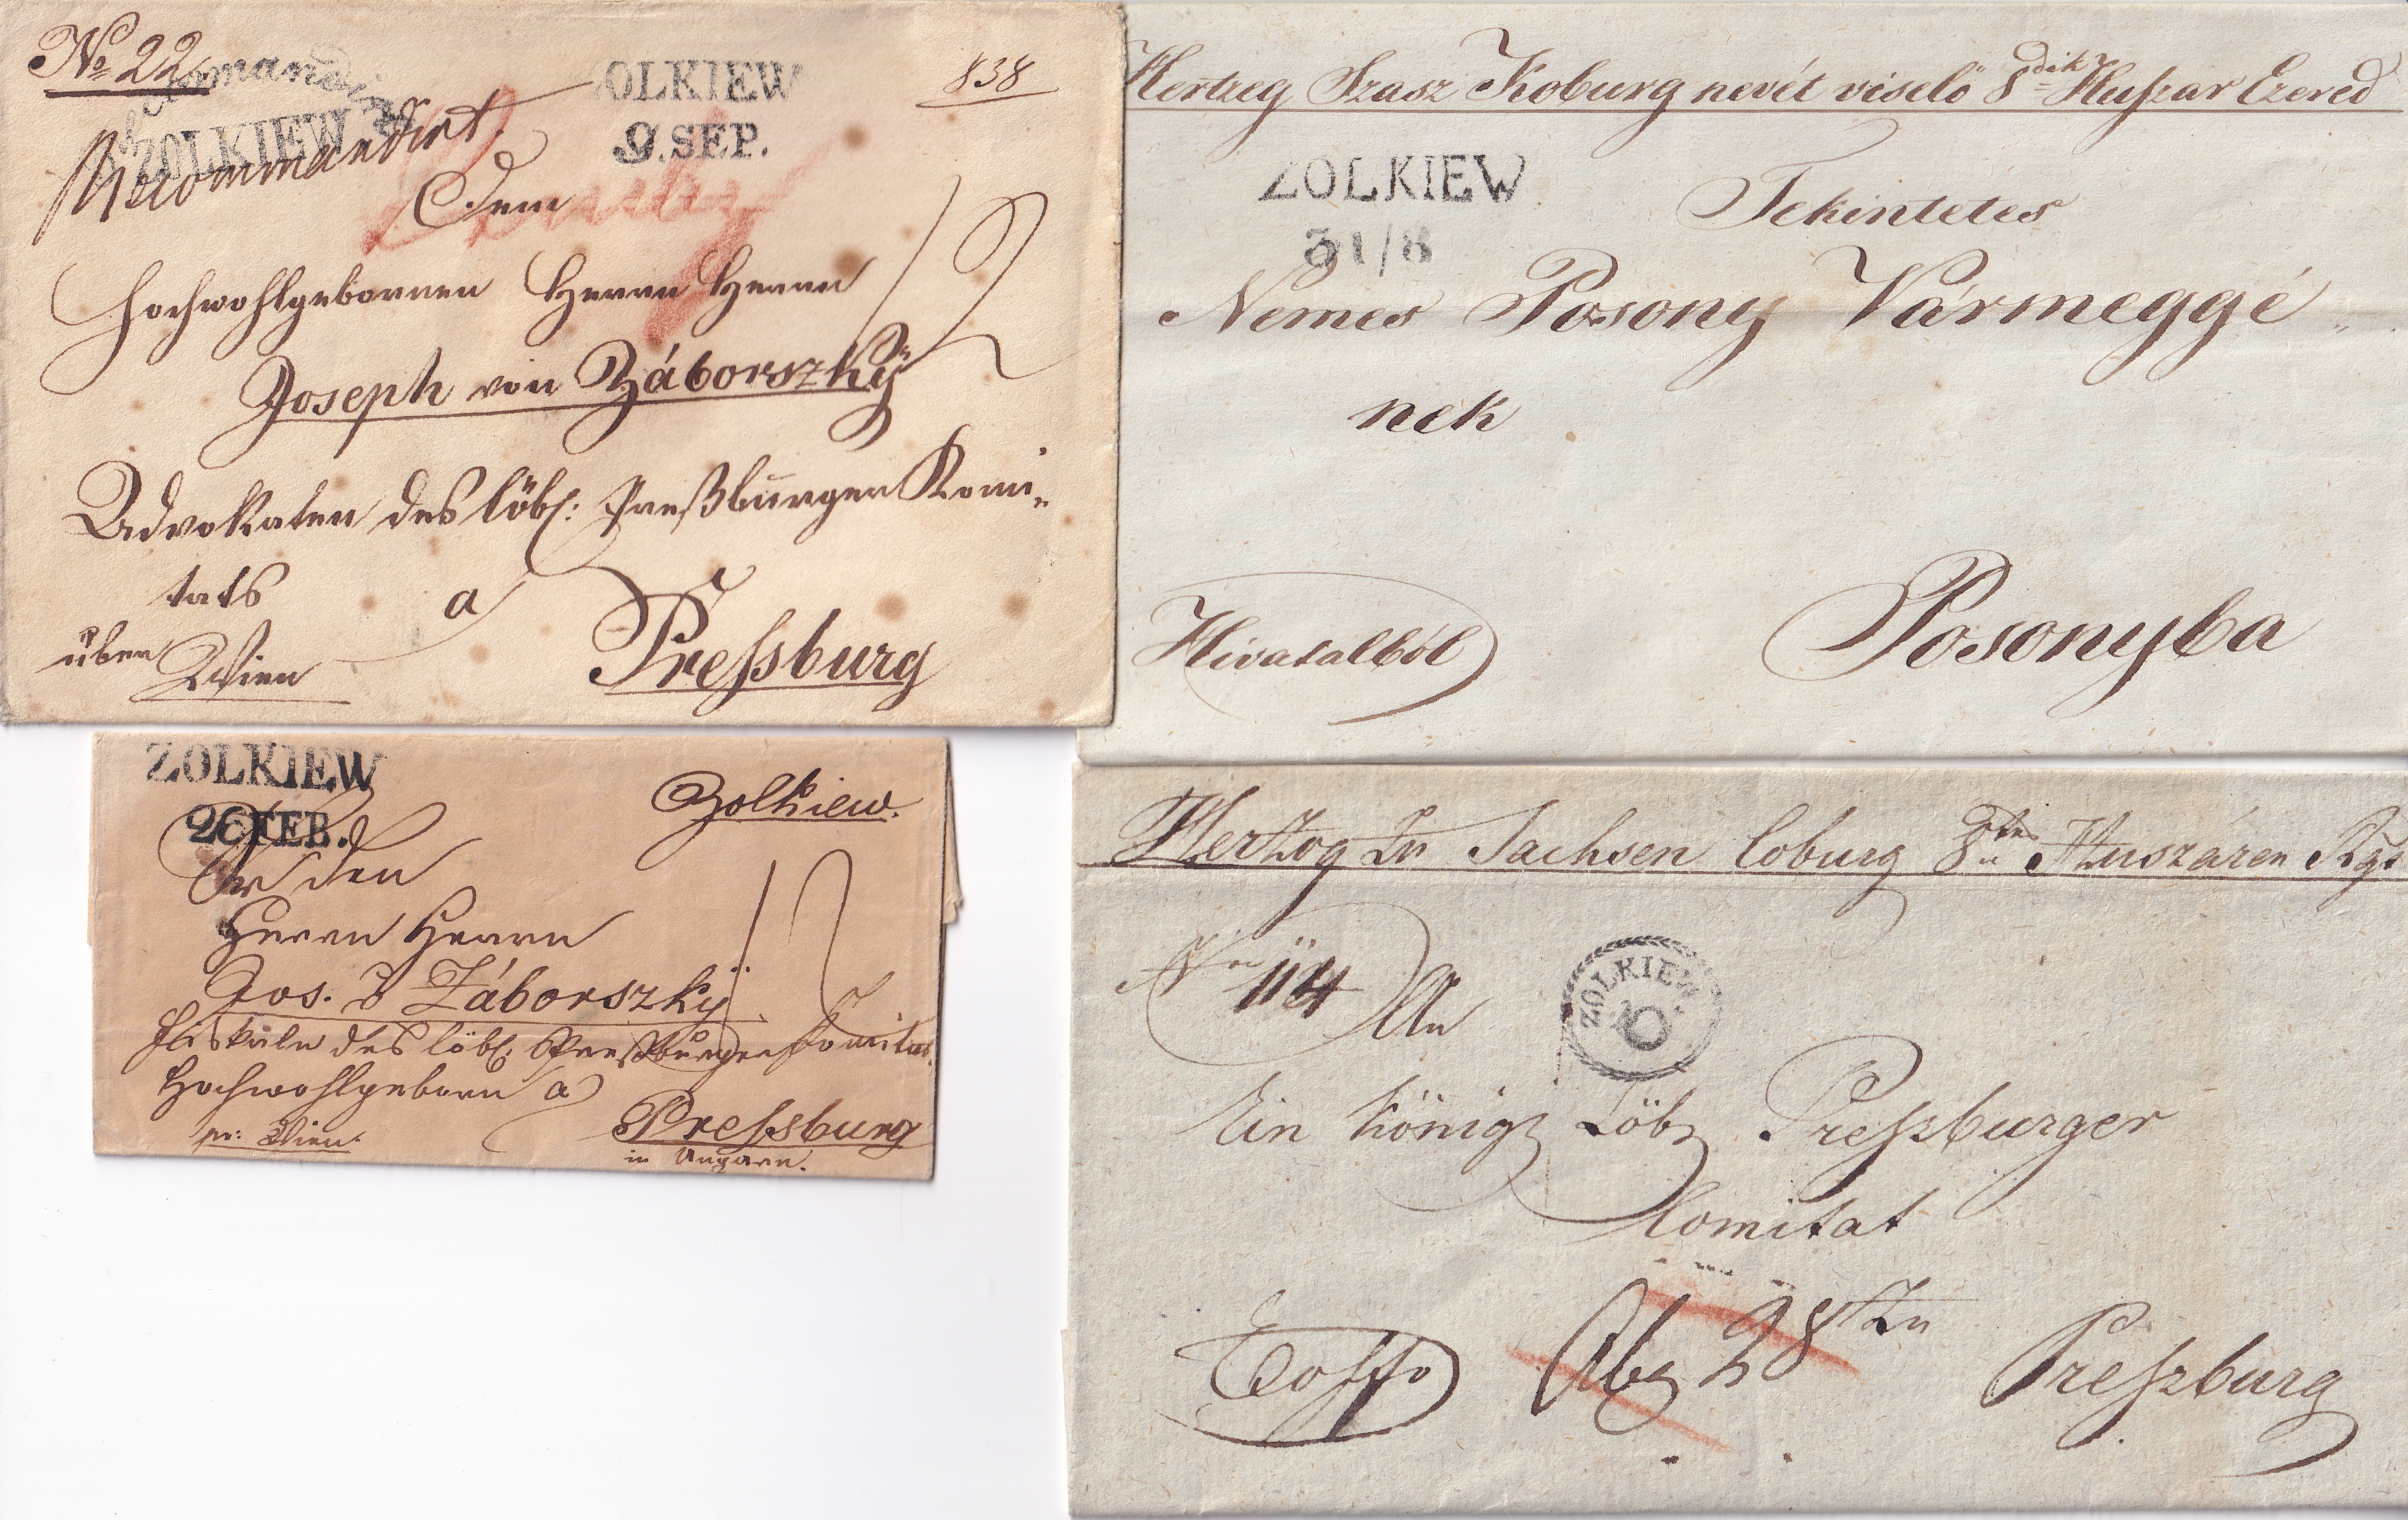 No 22
Recommandirt
ZOLKIEW
Recommandirt
OLKIEW
9. SEP.
838
Dem
Hochwohlgebornen Herrn Herrn
Joseph von Záborszkÿ
Advokaten des löbl: Preßburger Komi-
tats
a
über
Wien
Pressburg
12
Hertzeg Szasz Koburg nevét viselö 8dik Huszar Ezered
ZOLKIEW
31/8
Tekintetes
Nemes Posony Vármeggyé
nek
Hivatalból
Posonyba
ZOLKIEW
26 FEB.
Zolkiew.
An den
Herrn Herrn
Jos. v Záborszkÿ
Fiskale des löbl: Preßburger Komitat.
Hochwohlgeborn a
pr: Wien.
Pressburg
in Ungarn.
12
Hertzog Zu Sachsen Coburg 8ten Huszáren Rgt
Nro 114
An
ZOLKIEW
Ein königl Löbl Preszburger
Comitat
Exoffo
Zu
Preszburg